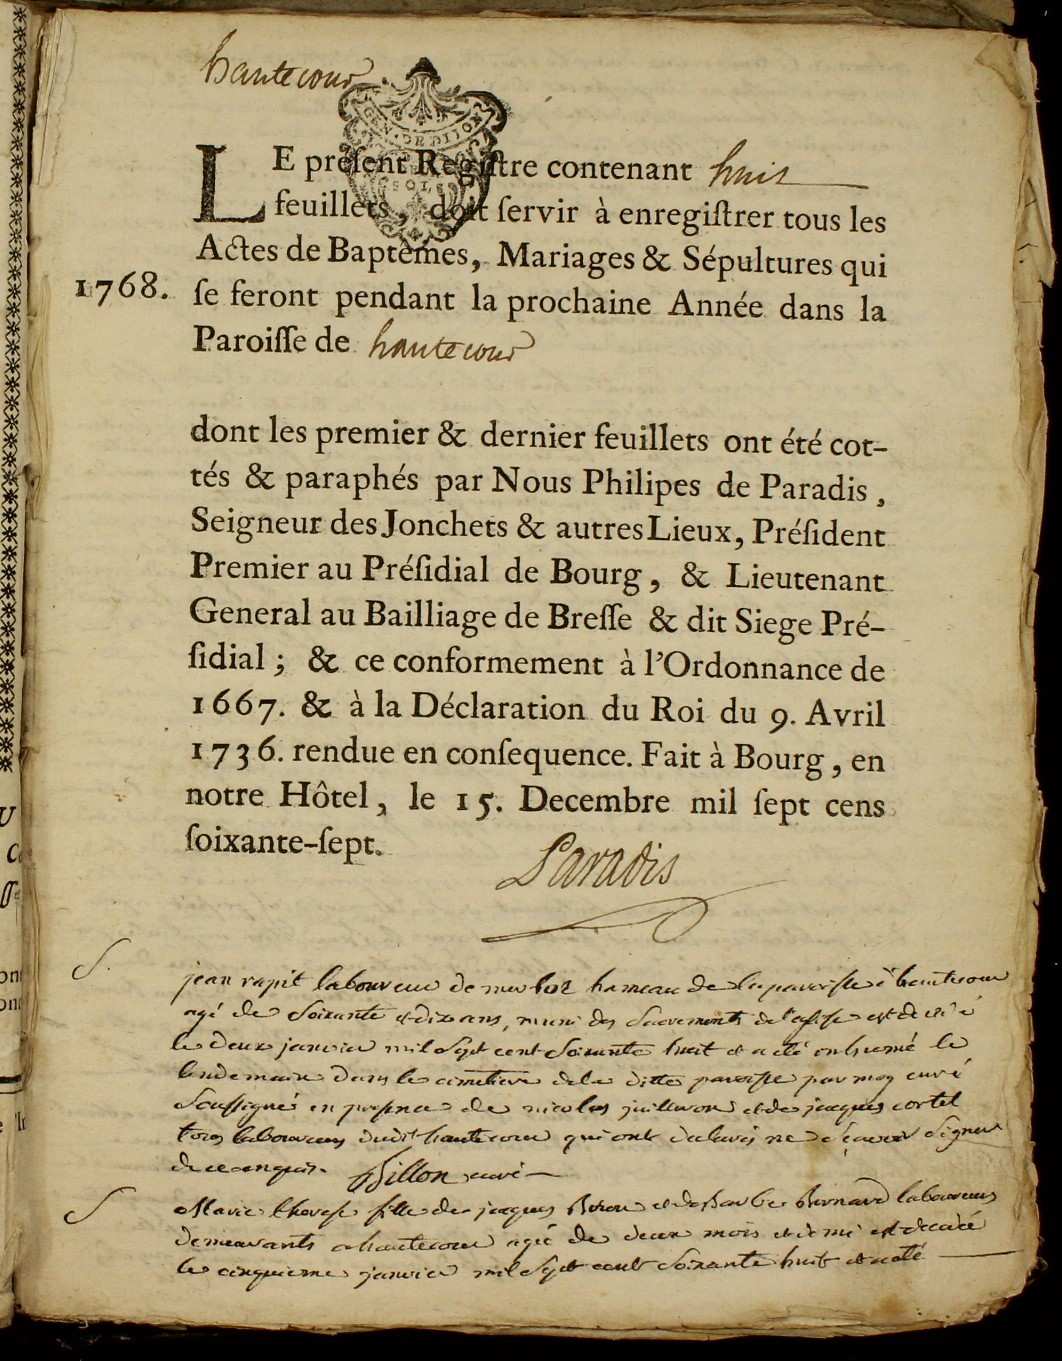 hautecour
GEN. DE DIJON
SOLS
LE préſent Regiſtre contenant huit
feuillets, doit ſervir à enregiſtrer tous les
Actes de Baptêmes, Mariages & Sépultures qui
1768. ſe feront pendant la prochaine Année dans la
Paroiſſe de hautecour
dont les premier & dernier feuillets ont été cot-
tés & paraphés par Nous Philipes de Paradis,
Seigneur des Jonchets & autres Lieux, Préſident
Premier au Préſidial de Bourg, & Lieutenant
General au Bailliage de Breſſe & dit Siege Pré-
ſidial; & ce conformement à l'Ordonnance de
1667. & à la Déclaration du Roi du 9. Avril
1736. rendue en conſequence. Fait à Bourg, en
notre Hôtel, le 15. Decembre mil ſept cens
ſoixante-ſept.
Paradis
S. jean rapit laboureur de hameau de la paroisse d'hautecour
agé de soixante et dix ans, muni des sacrements de l'eglise est decedé
le deux janvier mil sept cent soixante huit et a été inhumé le
lendemain dans le cimetiere de la ditte paroisse par moy curé
soussigné en presence de nicolas et de jacques
tous laboureurs dudit hautecour qui ont declarés ne sçavoir signer
de ce enquis. Billon curé
S Marie therese fille de jacques et de Bernard laboureurs
demeurants a hautecour agée de deux mois et demi est decedé
le cinquieme janvier mil sept cent soixante huit et a été